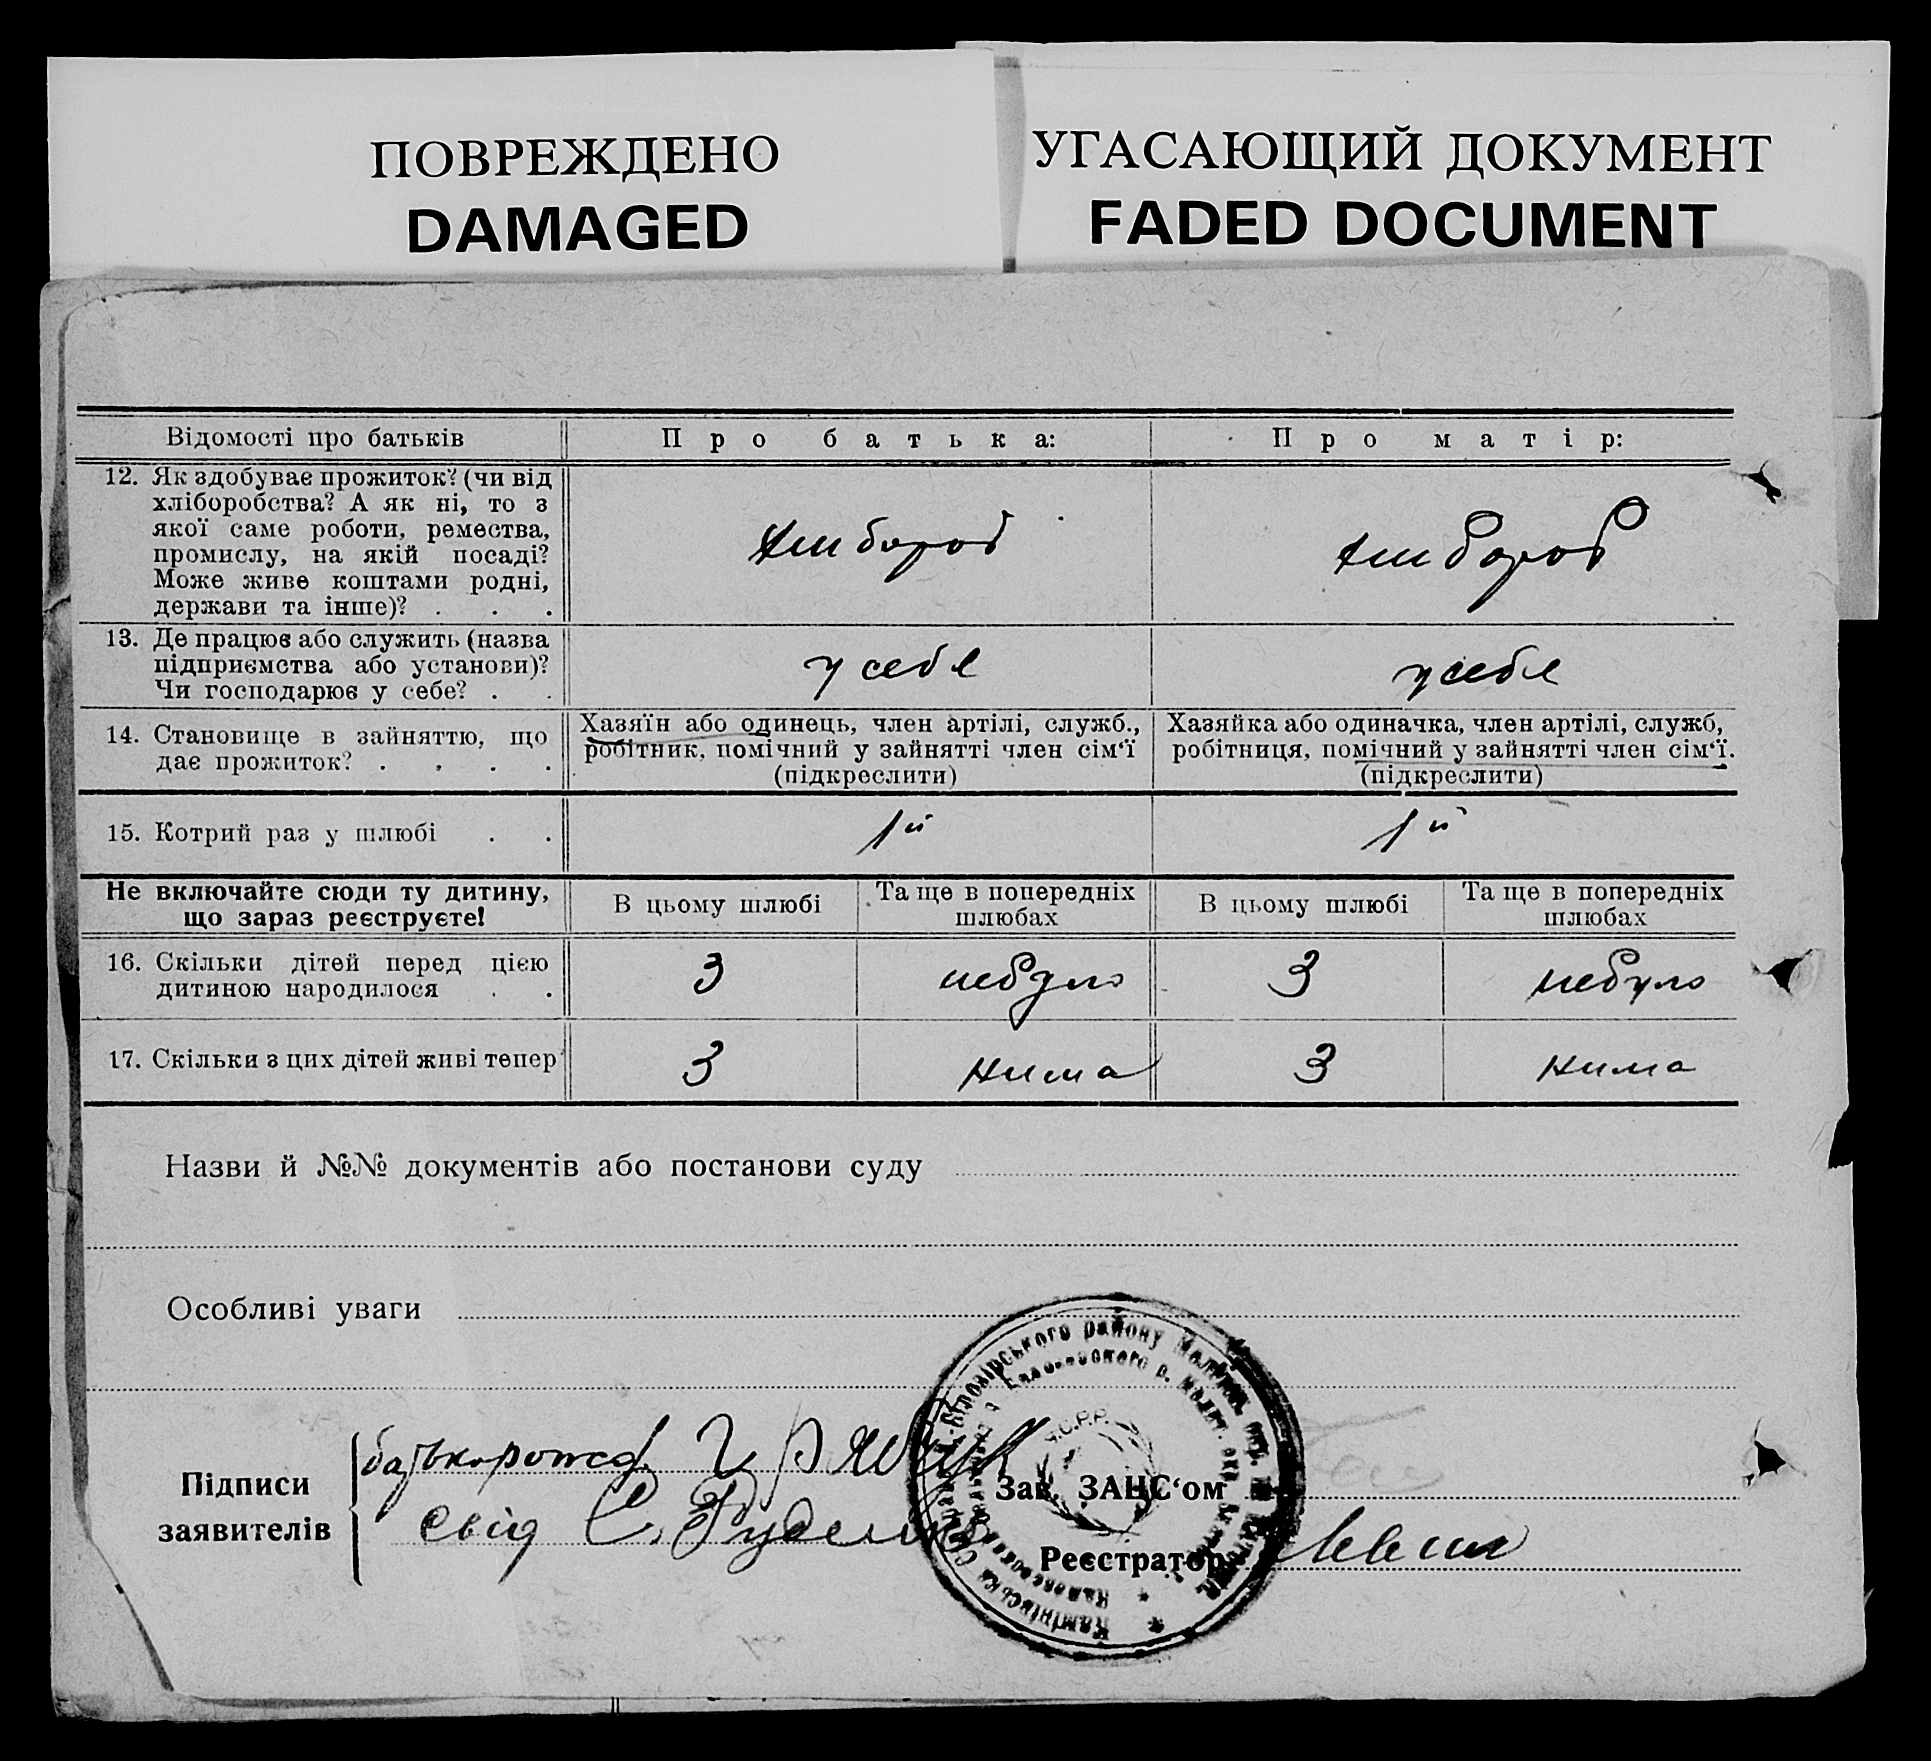 ПОВРЕЖДЕНО
DAMAGED
УГАСАЮЩИЙ ДОКУМЕНТ
FADED DOCUMENT
Відомості про батьків
Про батька:
Про матір:
12. Як здобуває прожиток? (чи від
хліборобства? А як ні, то з
якої саме роботи, ремества,
промислу, на якій посаді?
Може живе коштами родні,
держави та інше)? . . .
13. Де працює або служить (назва
підприємства або установи)?
Чи господарює у себе? . .
у себе
у себе
14. Становище в зайняттю, що
дає прожиток? . . . .
Хазяїн або одинець, член артілі, служб.,
робітник, помічний у зайнятті член сім'ї
(підкреслити)
Хазяйка або одиначка, член артілі, служб,
робітниця, помічний у зайнятті член сім'ї.
(підкреслити)
15. Котрий раз у шлюбі . .
1й
1й
Не включайте сюди ту дитину,
що зараз реєструєте!
В цьому шлюбі
Та ще в попередніх
шлюбах
В цьому шлюбі
Та ще в попередніх
шлюбах
16. Скільки дітей перед цією
дитиною народилося . .
3
небуло
3
небуло
17. Скільки з цих дітей живі тепер
3
нима
3
нима
Назви й №№ документів або постанови суду
Особливі уваги
Підписи
заявителів
свід С.
Зав. ЗАНС'ом
Реєстратор
У.С.Р.Р.
району